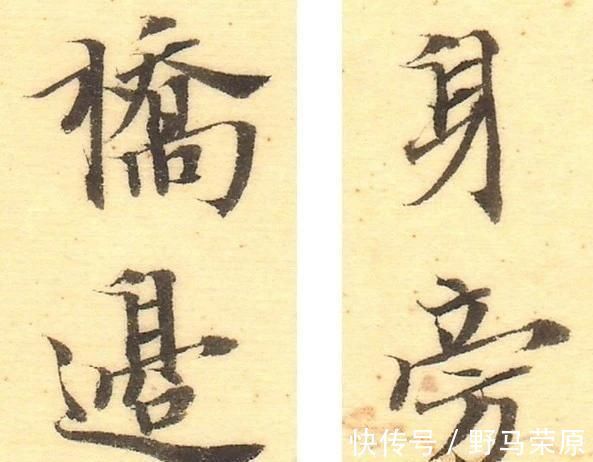 橋邊
身旁
快传号/野马荣原